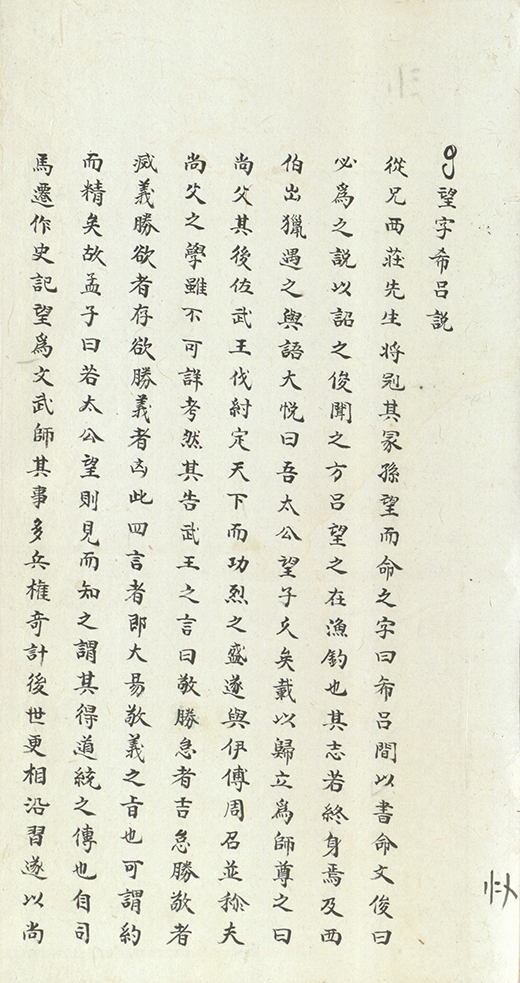 望字希呂説
從兄西莊先生将冠其冢孫望而命之字曰希呂間以書命文俊曰
必爲之説以詔之俊聞之方呂望之在漁釣也其志若終身焉及西
伯出獵遇之與語大悦曰吾太公望子久矣載以歸立爲師尊之曰
尚父其後佐武王伐紂定天下而功烈之盛遂與伊傅周召並稱夫
尚父之學雖不可詳考然其告武王之言曰敬勝怠者吉怠勝敬者
滅義勝欲者存欲勝義者凶此四言者即大易敬義之旨也可謂約
而精矣故孟子曰若太公望則見而知之謂其得道統之傳也自司
馬遷作史記望爲文武師其事多兵權奇計後世更相沿習遂以尚